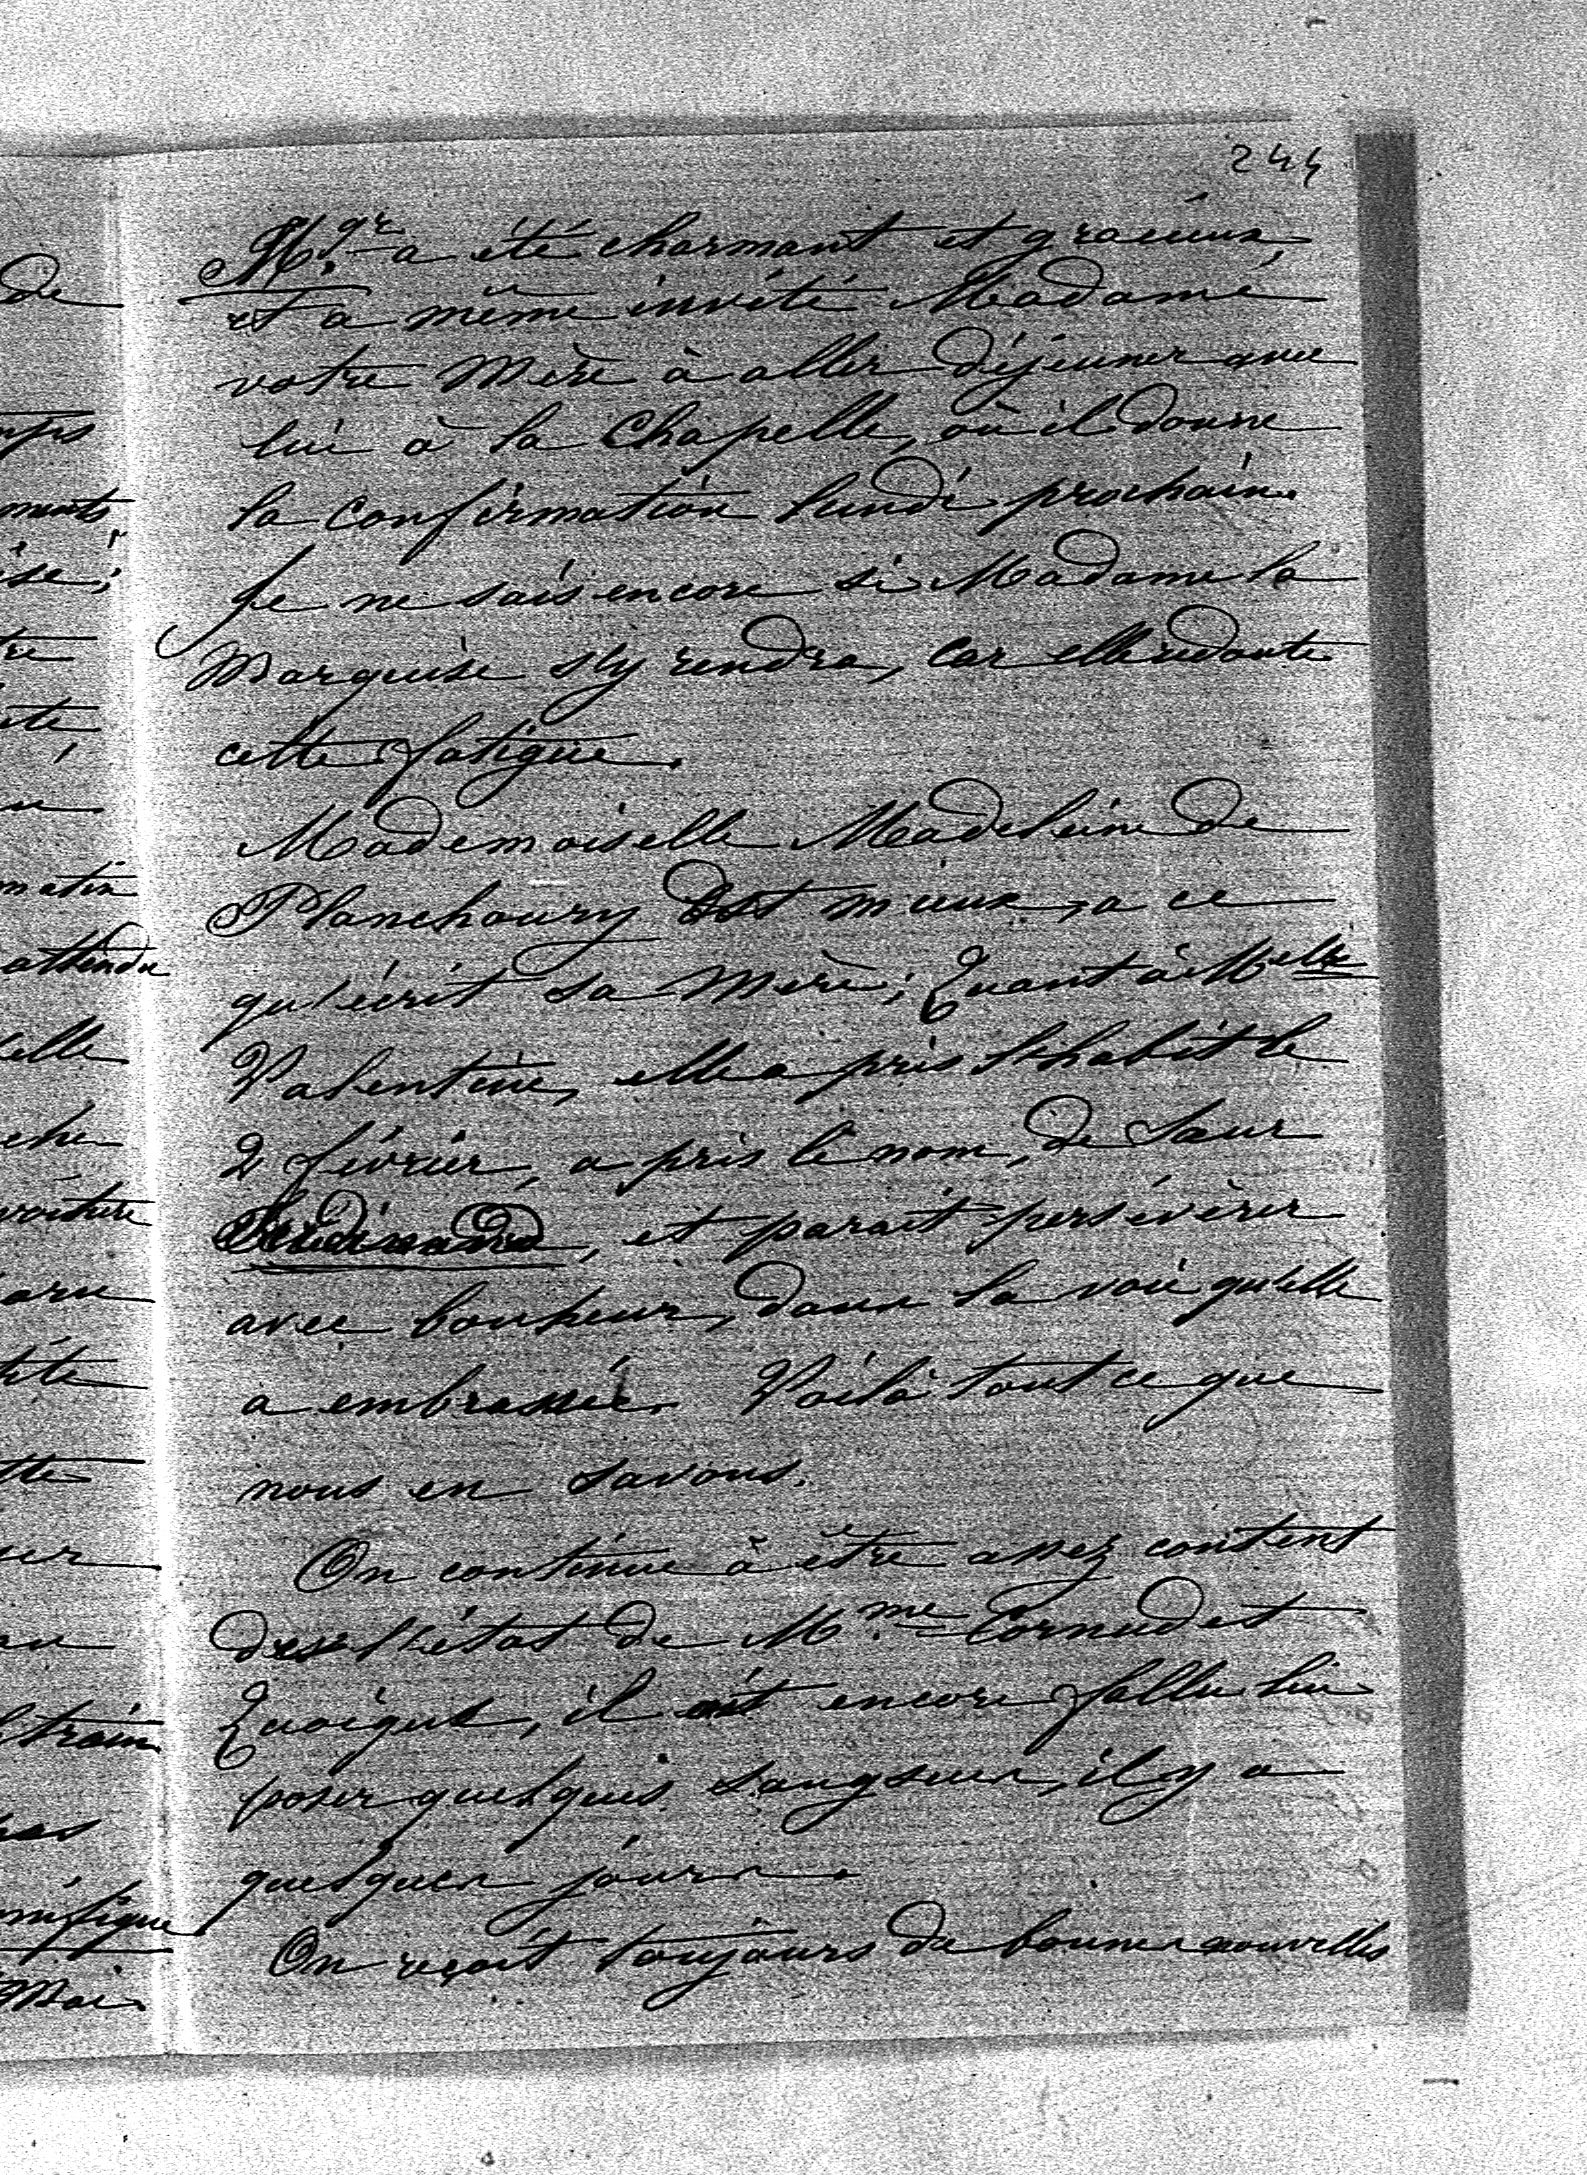 244
Mgr. a été charmant et gracieux,
et a même invité Madame,
votre Mère à aller déjeuner avec
lui à la Chapelle, où il donne
la confirmation lundi prochain.
Je ne sais encore si Madame la
Marquise s'y rendra, car elle redoute
cette fatigue.
Mademoiselle Madeleine de
Planchoury est mieux, a ce
qu'écrit sa Mère; Quant à Melle
Valentine, elle a pris l'habit le
2 février, a pris le nom, de Sœur
Ferdinand, et parait persévérer
avec bonheur, dans la voie qu'elle
a embrassée. Voilà tout ce que
nous en savons.
On continue à être assez content
de l'état de Mme. Cornudet
Quoique, il ait encore fallu lui
poser quelques sangsues, il y a
quelques jours.
On reçoit toujours de bonnes nouvelles
de
ments
attendu
elle
voiture
train
Mai